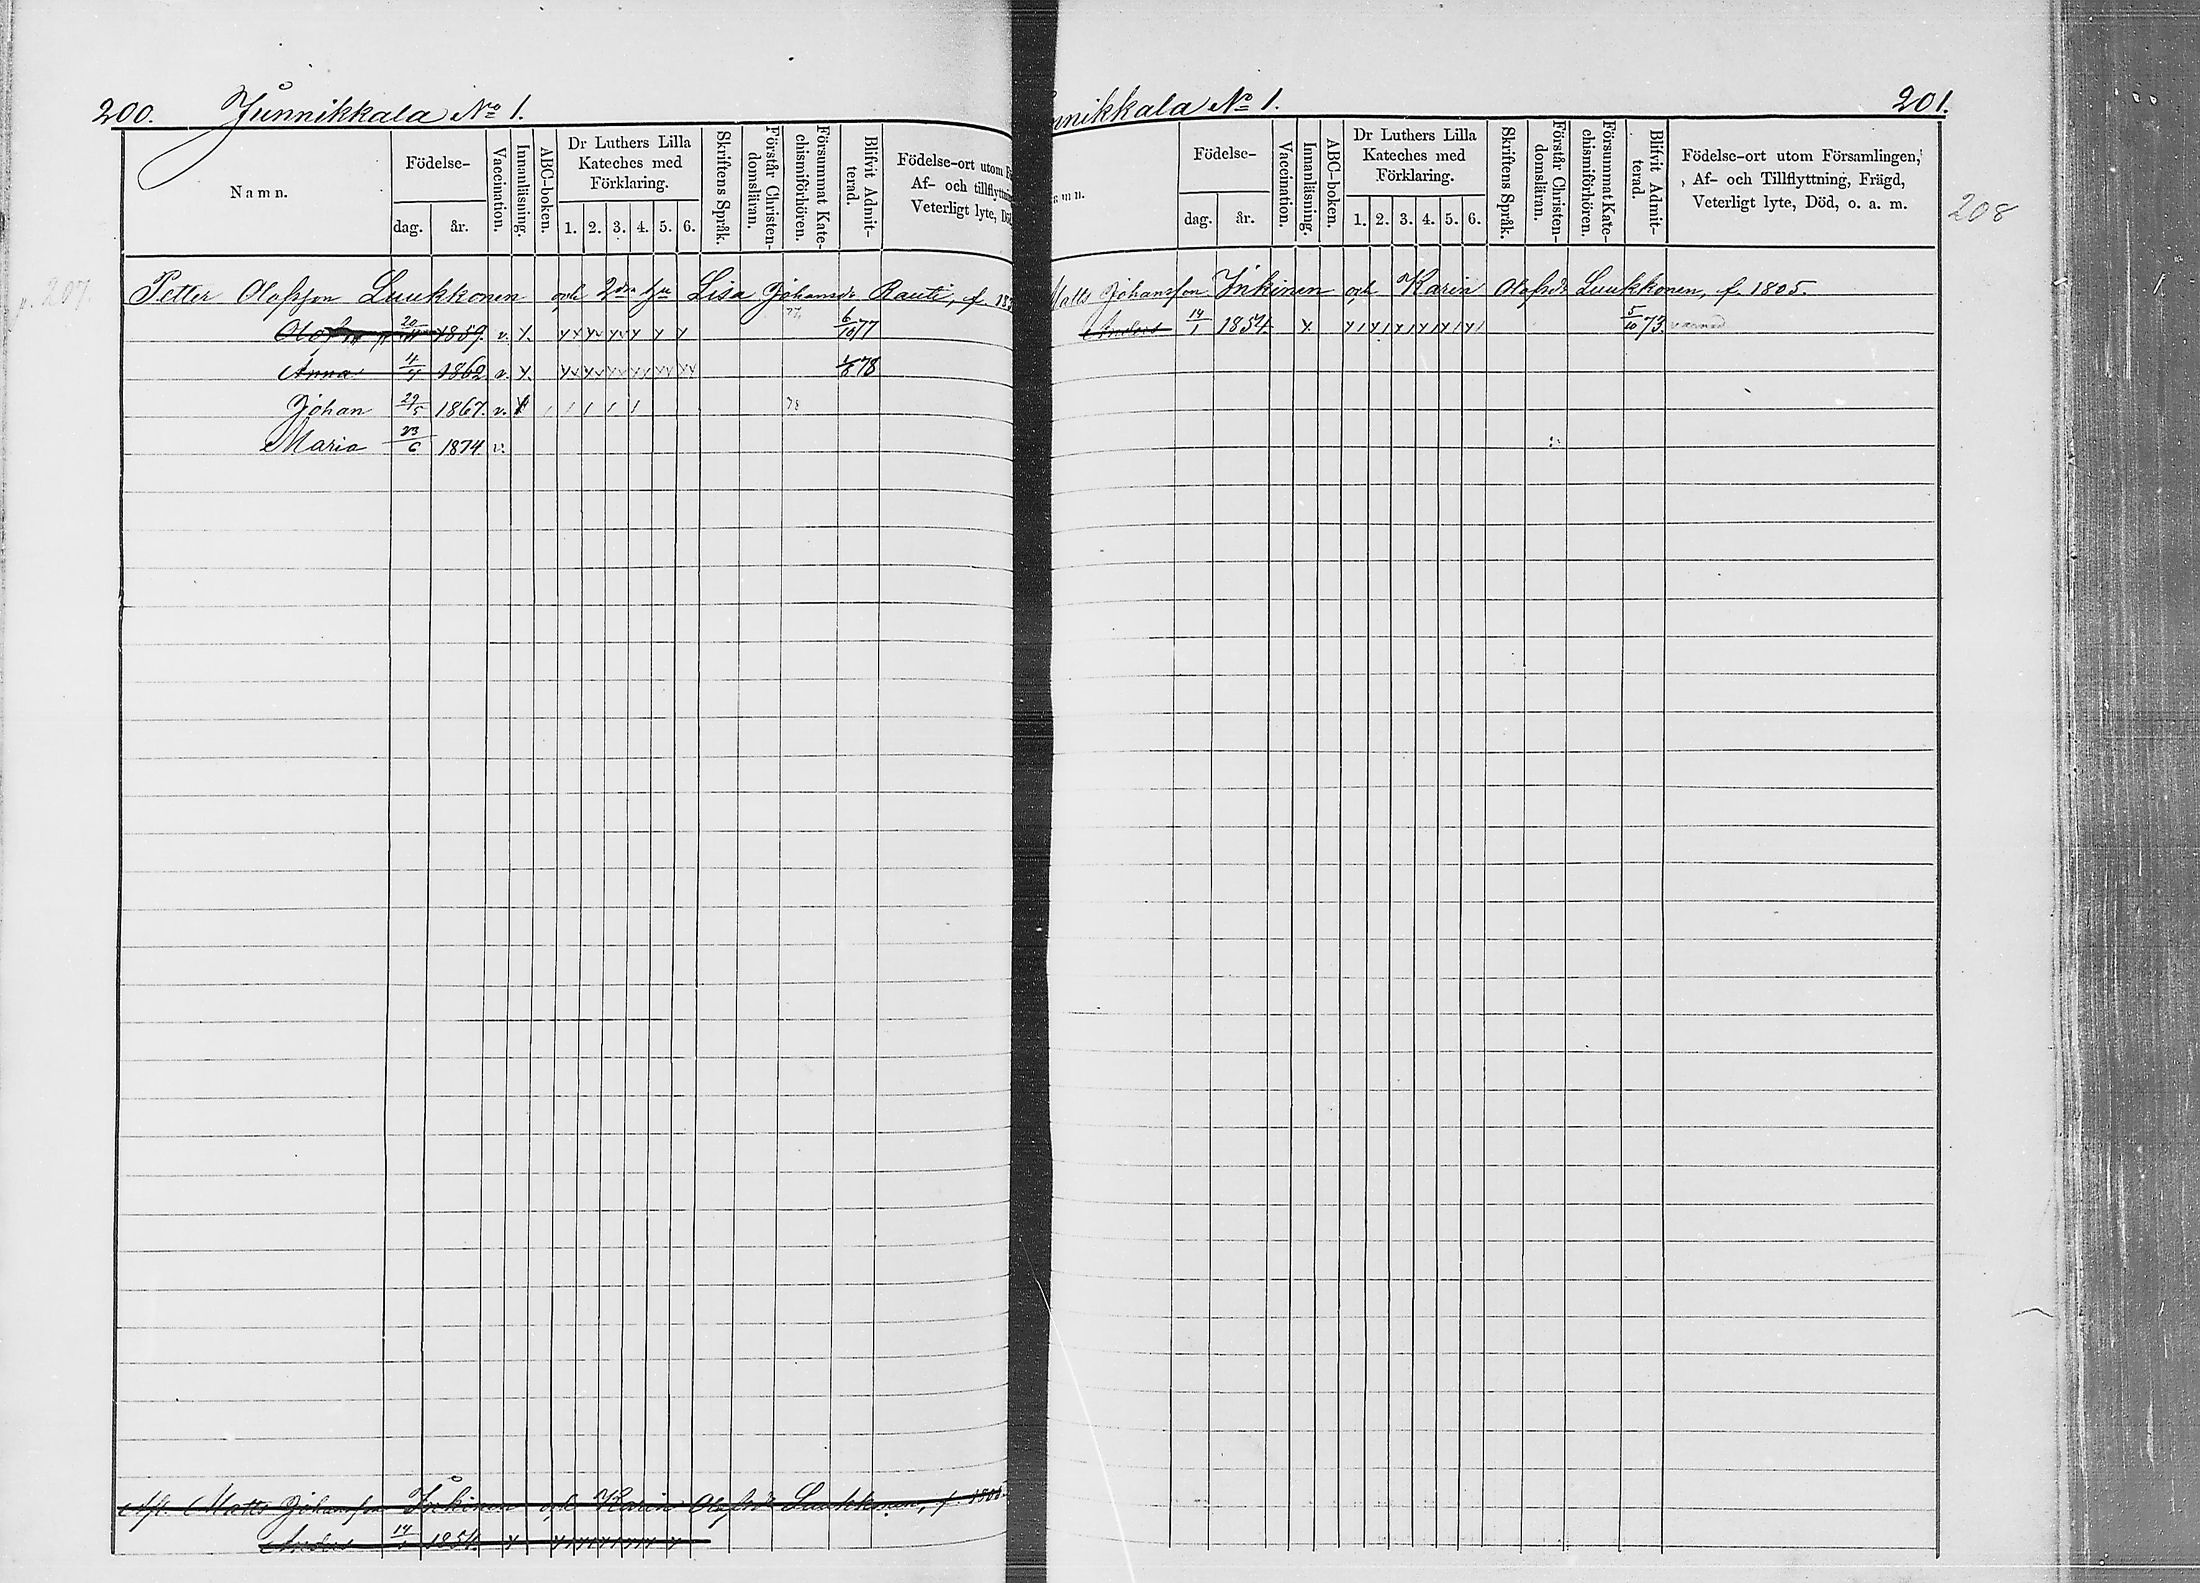 200. Junnikkala No 1.
Namn.
Födelse-
dag. år.
Vaccination.
Innanläsning.
ABC-boken.
Dr Luthers Lilla
Kateches med
Förklaring.
1. 2. 3. 4. 5. 6.
Skriftens Språk.
Förstår Christen-
domsläran.
Försummat Kate-
chismiförhören.
Blifvit Admit-
terad.
Födelse-ort utom
Af- och tillflyttn
Veterligt lyte, Dö
p. 207.
Petter Olofsson Luukkonen och 2dra hu Lisa Johansdr Rauti, f. 18
77
Olof 20/11 1859. v. x. 6/10 77
Anna 4/4 1862 v. x. 1/8 78
Johan 29/5 1867. v. x 78
Maria 23/6 1874 v.
Afl. Matts Johansson Inkinen och Karin Olofsdr Luukkonen, f. 1805
Anders 14/1 1854. x
nnikkala No 1. 201.
amn.
Födelse-
dag. år.
Vaccination.
Innanläsning.
ABC-boken.
Dr Luthers Lilla
Kateches med
Förklaring.
1. 2. 3. 4. 5. 6.
Skriftens Språk.
Förstår Christen-
domsläran.
Försummat Kate-
chismiförhören.
Blifvit Admit-
terad.
Födelse-ort utom Församlingen,
Af- och Tillflyttning, Frägd,
Veterligt lyte, Död, o. a. m.
208
Matts Johansson Inkinen och Karin Olofsdr Luukkonen, f. 1805.
Anders 14/1 1854. x 5/10 73.